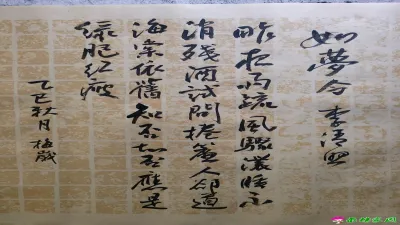 如夢令 李清照
昨夜雨疏風驟濃睡不
消殘酒試問捲簾人卻道
海棠依舊知否知否應是
綠肥紅瘦
乙巳秋月